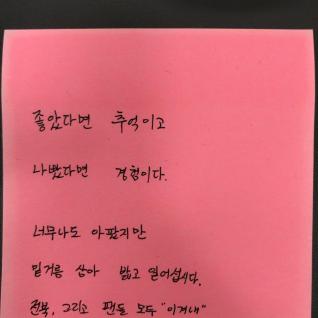 좋았다면 추억이고
나빴다면 경험이다.
너무나도 아팠지만
밑거름 삼아 밟고 일어섭시다.
전북, 그리고 팬들 모두 "이겨내"